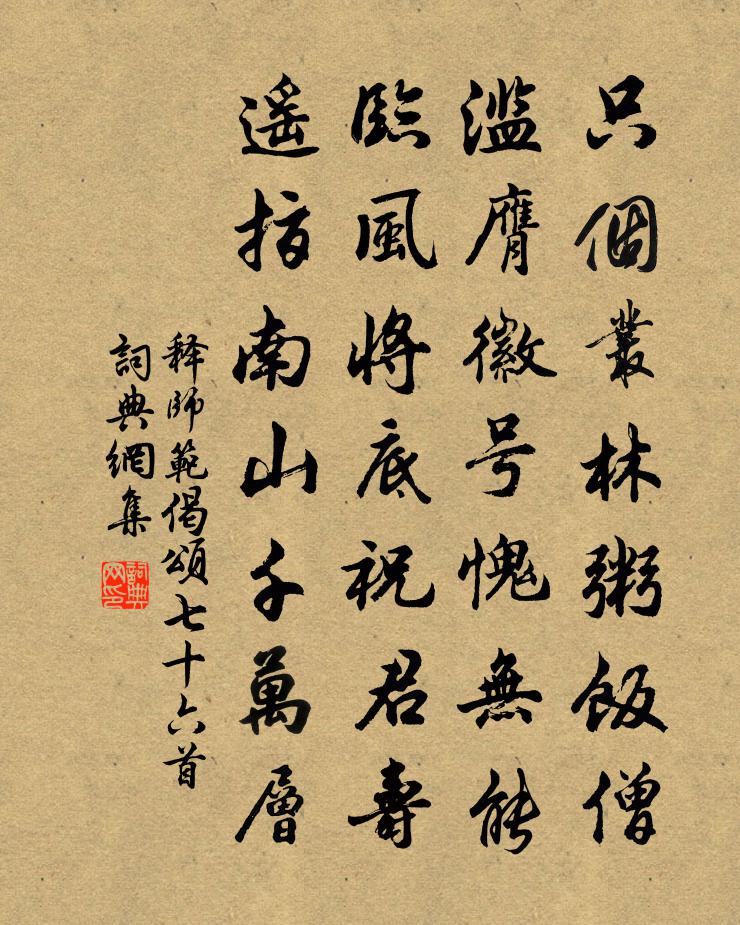 只個叢林粥飯僧
滥膺徽号愧無能
臨風將底祝君壽
遥指南山千萬層
释師範偈頌七十六首
詞典網集
詞典网印